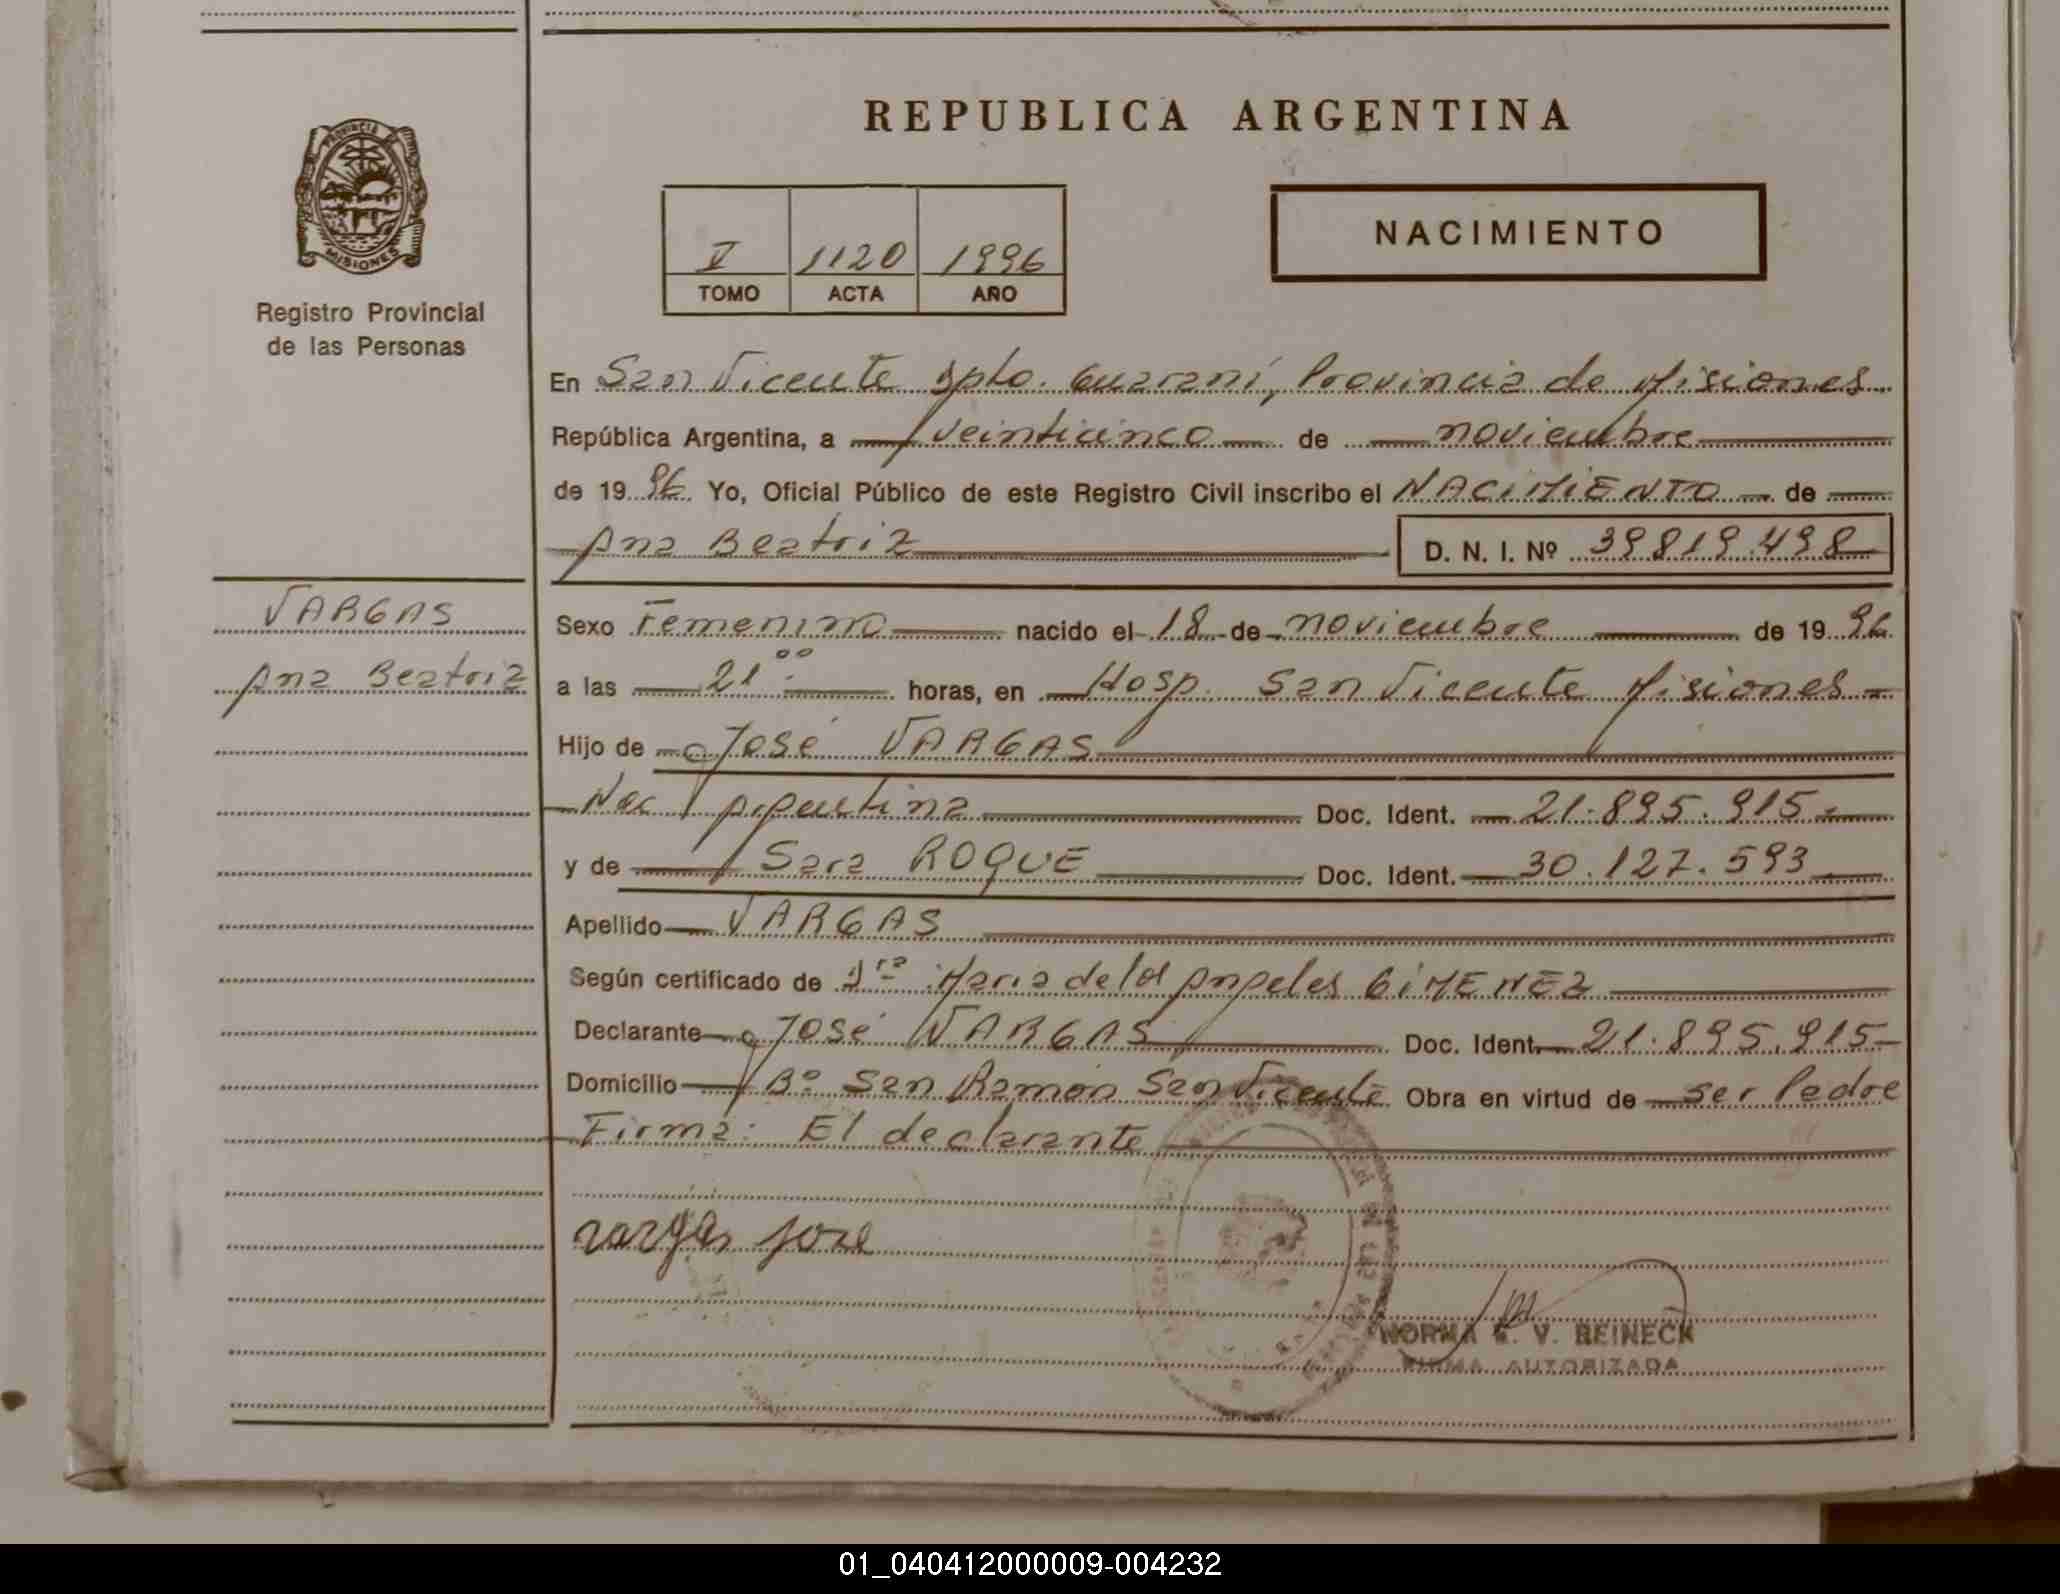 REPUBLICA ARGENTINA
PROVINCIA DE MISIONES
Registro Provincial
de las Personas
V 1120 1996
TOMO ACTA AÑO
NACIMIENTO
En San Vicente Dpto. Guaraní, Provincia de Misiones
República Argentina, a veinticinco de noviembre
de 1996 Yo, Oficial Público de este Registro Civil inscribo el NACIMIENTO de
Ana Beatriz D. N. I. Nº 39819.498
VARGAS
Ana Beatriz
Sexo Femenino nacido el 18 de noviembre de 1996
a las 21:00 horas, en Hosp. San Vicente Misiones
Hijo de José VARGAS
Nac Argentina Doc. Ident. 21.895.915
y de Sara ROQUE Doc. Ident. 30.127.593
Apellido VARGAS
Según certificado de Dra María de los Angeles GiMENEZ
Declarante José VARGAS Doc. Ident. 21.895.915
Domicilio Bº San Ramón San Vicente Obra en virtud de ser Padre
Firma: El declarante
vargas jose
NORMA V. REINECK
FIRMA AUTORIZADA
01_040412000009-004232